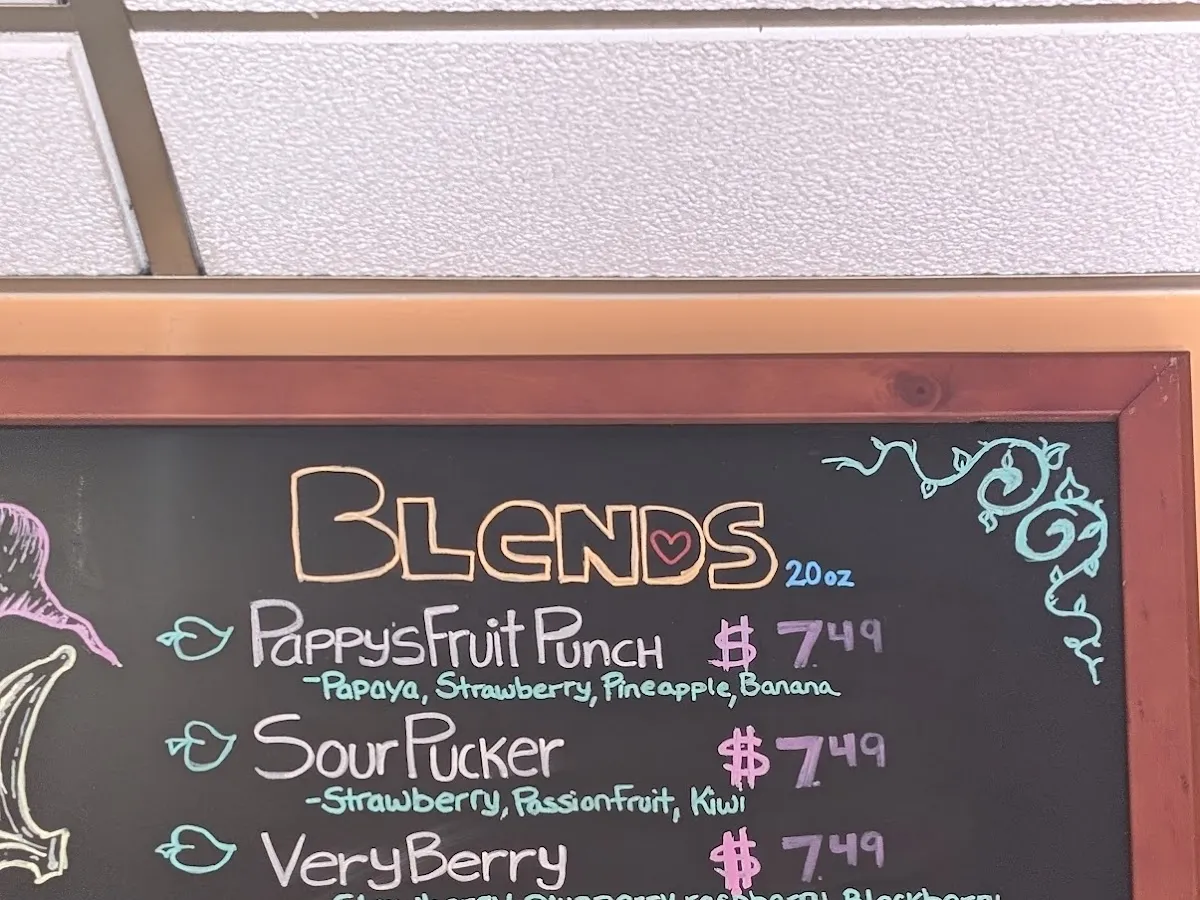 BLENDS 20oz
Pappy's Fruit Punch $7.49
-Papaya, Strawberry, Pineapple, Banana
Sour Pucker $7.49
-Strawberry, Passionfruit, Kiwi
Very Berry $7.49
Blackberry